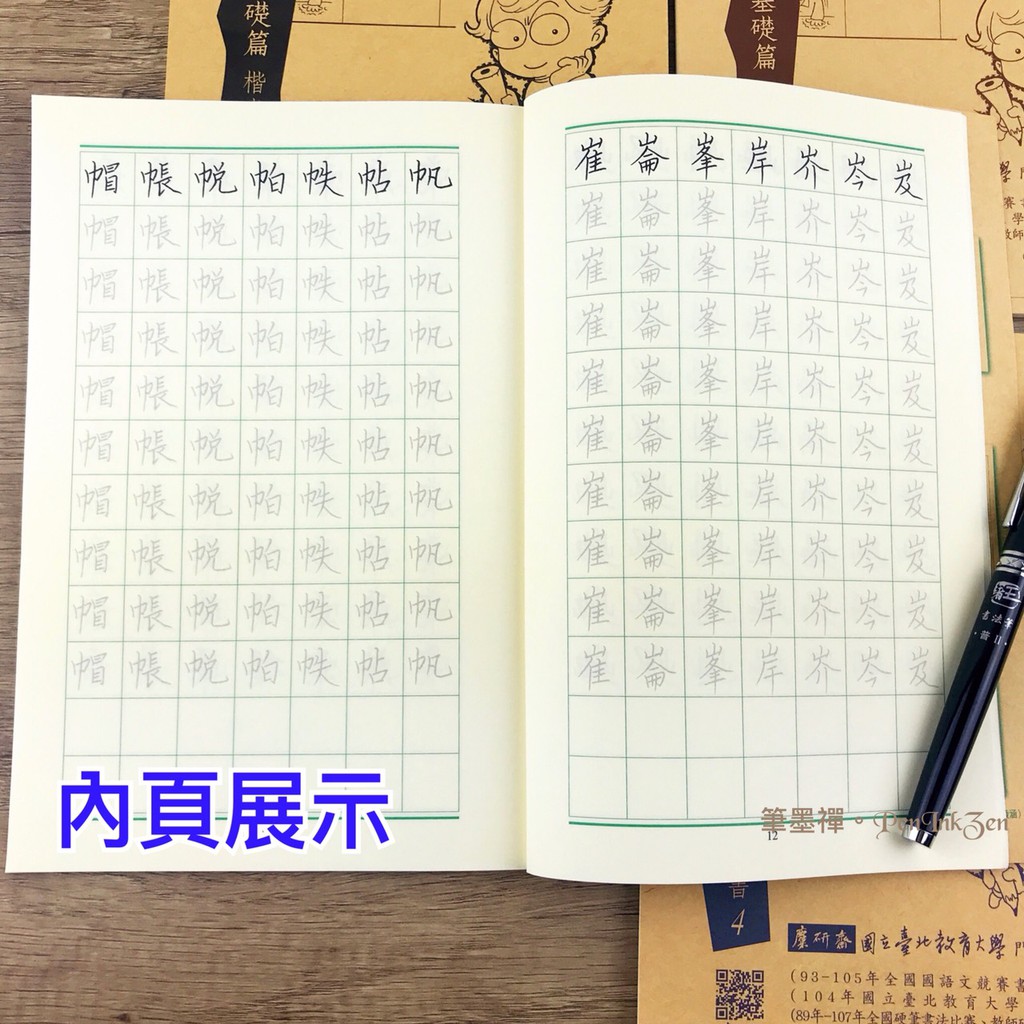 礎篇 楷
基礎篇
帽帳帨帕帙帖帆
帽帳帨帕帙帖帆
帽帳帨帕帙帖帆
帽帳帨帕帙帖帆
帽帳帨帕帙帖帆
帽帳帨帕帙帖帆
帽帳帨帕帙帖帆
帽帳帨帕帙帖帆
帽帳帨帕帙帖帆
帽帳帨帕帙帖帆
崔崙峯岸岕岑岌
崔崙峯岸岕岑岌
崔崙峯岸岕岑岌
崔崙峯岸岕岑岌
崔崙峯岸岕岑岌
崔崙峯岸岕岑岌
崔崙峯岸岕岑岌
崔崙峯岸岕岑岌
崔崙峯岸岕岑岌
崔崙峯岸岕岑岌
內頁展示
筆墨禪。PenInkZen
12
書4
塵研齋 國立臺北教育大學 門
(93-105年全國國語文競賽書
(104年國立臺北教育大學
(89年-107年全國硬筆書法比賽、教師